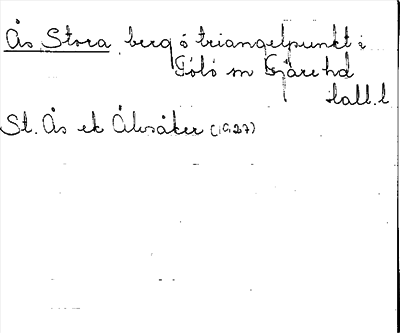 Ås Stora berg ö triangelpunkt i
Fjärehd
Hall.l
St. Ås ek Älvsåker (1927)